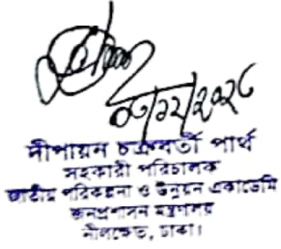 দীপায়ন চক্রবর্তী পার্থ
সহকারী পরিচালক
জাতীয় পরিকল্পনা ও উন্নয়ন একাডেমি
জনপ্রশাসন মন্ত্রণালয়
নীলক্ষেত, ঢাকা।